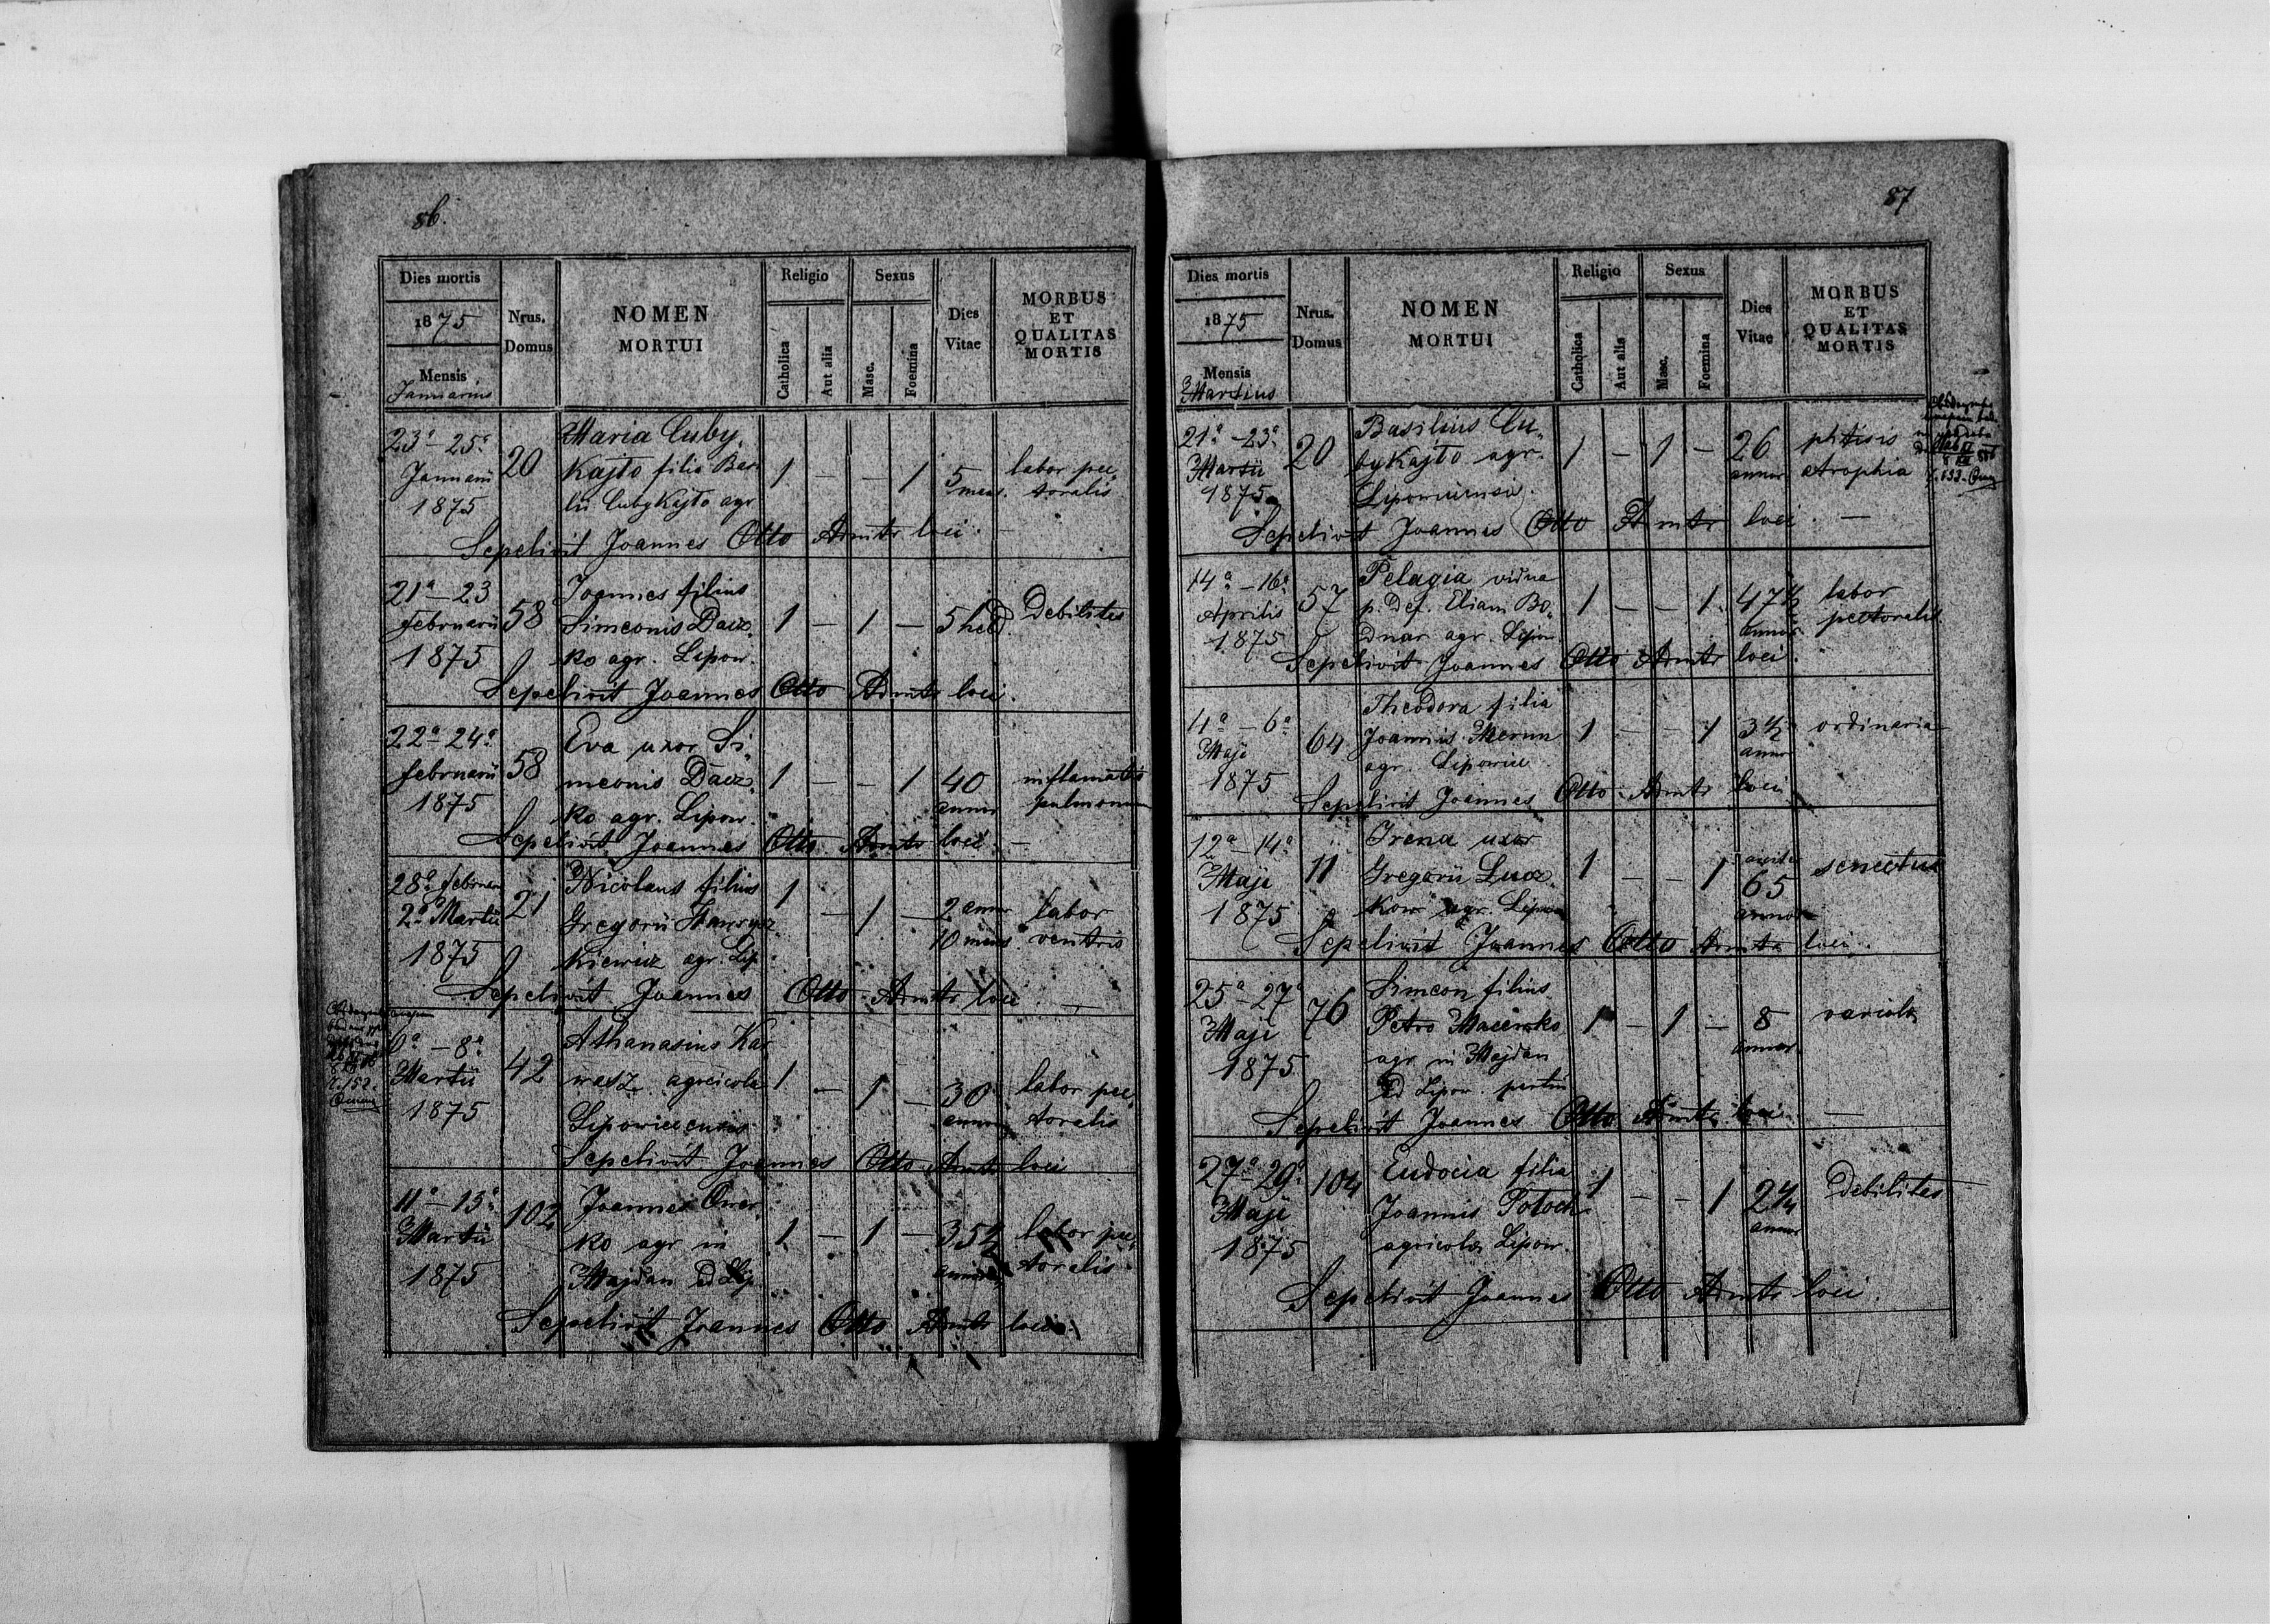 86.
Dies mortis
1875
Mensis
Januarius
Nrus. Domus
NOMEN MORTUI
Religio
Catholica
Aut alia
Sexus
Masc.
Foemina
Dies Vitae
MORBUS ET QUALITAS MORTIS
23a - 25a Januarii 1875
20
Maria Cuby,
kajto filia Basi
lii Cubykajto agr
1 — — 1
5 mens.
labor pec,
toralis
Sepelivit Joannes Otto Admtr loci. —
21a - 23 Februarii 1875
58
Joannes filius
Simeonis Dacz,
ko agr. Lipow.
1 — 1 —
5 hebd.
Debilitas
Sepelivit Joannes Otto Admtr loci.
22a - 24a Februarii 1875
58
Eva uxor Si,
meonis Dacz,
ko agr. Lipow.
1 — — 1
40 annor
inflamatio
pulmonum
Sepelivit Joannes Otto Admtr loci. —
28a Februar
2a Martii
1875
21
Nicolaus filius
Gregorii
kiewicz agr. Lip.
1 — 1 —
2 annor
10 mens
labor
ventris
Sepelivit Joannes Otto Admtr loci. —
6a - 8a Martii 1875
42
Athanasius Kar
wasz agricola
1 — 1 —
30 annor
labor pec,
toralis
Sepelivit Joannes Otto Admtr loci
11a - 13a Martii 1875
102
Joannes Ower,
ko agr in
Majdan ad Lip
1 — 1 —
35½ annor
labor pec,
toralis
Sepelivit Joannes Otto Admtr loci.
87
Dies mortis
1875
Mensis
Martius
Nrus. Domus
NOMEN MORTUI
Religio
Catholica
Aut alia
Sexus
Masc.
Foemina
Dies Vitae
MORBUS ET QUALITAS MORTIS
21a - 23a Martii 1875
20
Basilius Cu,
bykajto agr.
1 — 1 —
26 annor
phtisis
atrophia
Sepelivit Joannes Otto Admtr loci. —
14a - 16a Aprilis 1875
57
Pelagia vidua
p. def. Eliam Bo,
dnar agr. Lipow
1 — — 1.
47½ annor
labor
pectoralis
Sepelivit Joannes Otto Admtr loci.
4a - 6a Maji 1875
64
Theodora filia
Joannis
agr. Lipowice
1 — — 1
3½ annor
ordinaria
Sepelivit Joannes Otto Admtr loci
12a - 14a Maji 1875
11
Irena uxor
Gregorii Lucz,
kow agr. Lipow
1 — — 1
65 annor
senectus
Sepelivit Joannes Otto Admtr loci.
25a - 27a Maji 1875
76
Simeon filius
Petro Macenko
agr in Majdan
ad Lipow. pertin
1 — 1 —
8 annor.
variola
Sepelivit Joannes Otto Admtr loci. —
27a - 29a Maji 1875
104
Eudocia filia
Joannis Potoch
agricola Lipow.
1 — — 1
2¼ annor
Debilitas
Sepelivit Joannes Otto Admtr loci.